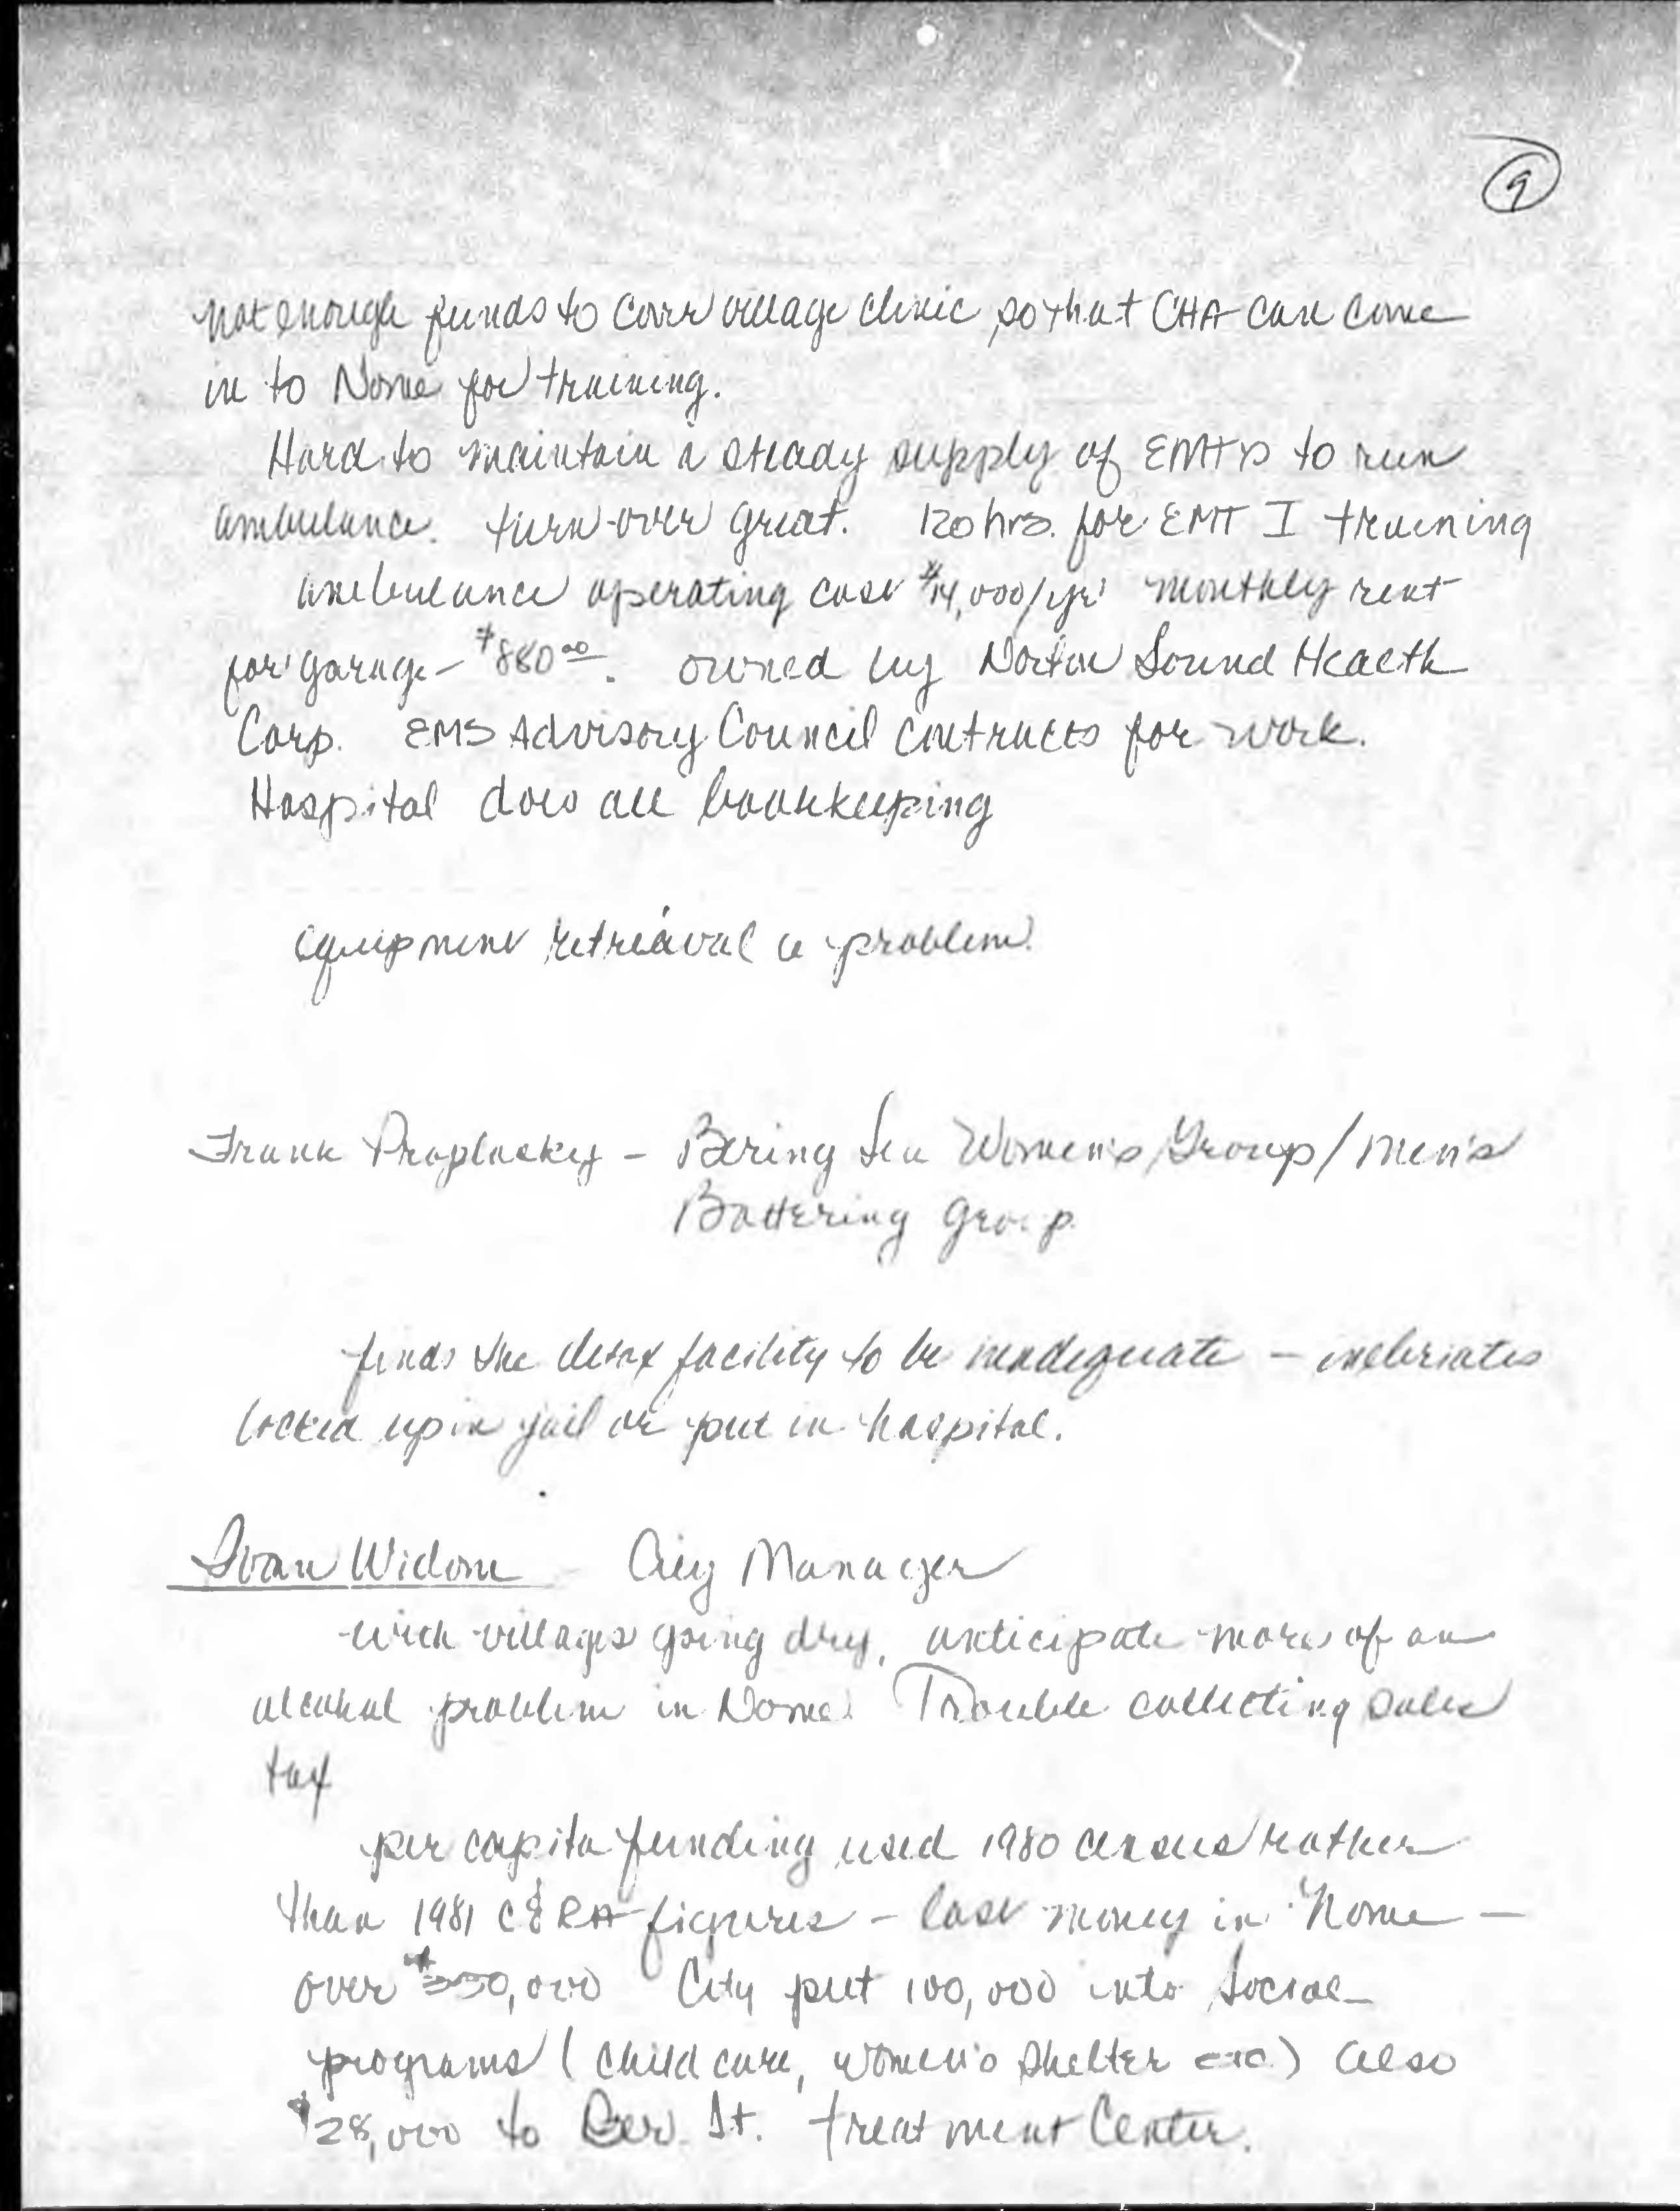 9
not enough funds to cover village clinic so that CHA can come
in to Nome for training.
Hard to maintain a steady supply of EMTs to run
ambulance. turn-over great. 120 hrs. for EMT I training
ambulance operating cost $14,000/yr monthly rent
for garage - $880.00. owned by Norton Sound Health
Corp. EMS Advisory Council contracts for work.
Hospital does all bookkeeping
equipment retrieval a problem
Frank - Bering Sea Women's Group/Men's
Battering Group
finds the detox facility to be inadequate - inebriates
locked up in jail or put in hospital.
Ivan Widom - City Manager
with villages going dry, anticipate more of an
alcohol problem in Nome. Trouble collecting sales
tax
per capita funding used 1980 census rather
than 1981 C&RA figures - lost money in Nome -
over City put 100,000 into social
programs (child care, women's shelter etc.) also
$28,000 to Ber. St. treatment Center.